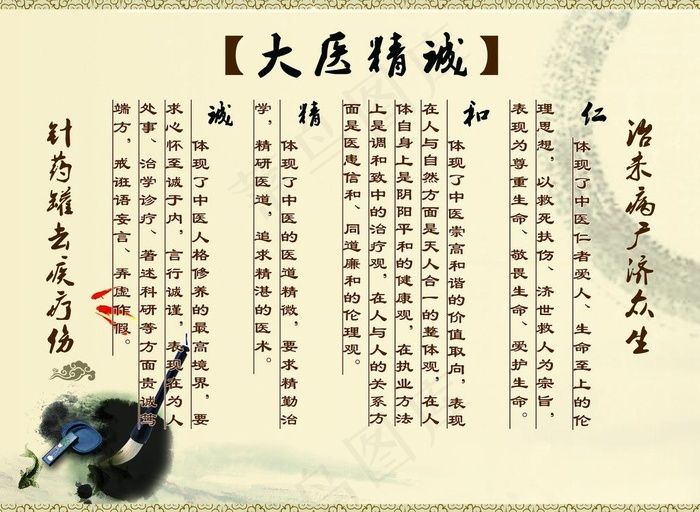 【大医精诚】
治未病广济众生
仁
体现了中医仁者爱人、生命至上的伦
理思想，以救死扶伤、济世救人为宗旨，
表现为尊重生命、敬畏生命、爱护生命。
和
体现了中医崇高和谐的价值取向，表现
在人与自然方面是天人合一的整体观，在人
体自身上是阴阳平和的健康观，在执业方法
上是调和致中的治疗观，在人与人的关系方
面是医患信和、同道廉和的伦理观。
精
体现了中医的医道精微，要求精勤治
学，精研医道，追求精湛的医术。
诚
体现了中医人格修养的最高境界，要
求心怀至诚于内，言行诚谨，表现在为人
处事、治学诊疗、著述科研等方面贵诚笃
端方，戒诳语妄言、弄虚作假。
针药罐去疾疗伤